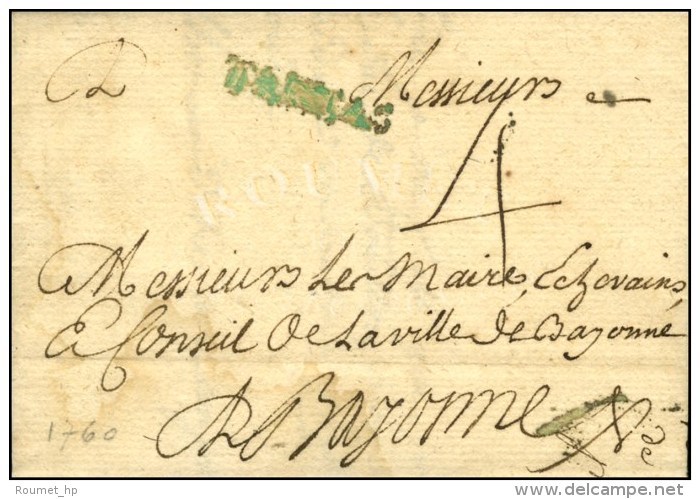 A Messieurs
TARTAS
4
Messieurs les maire, Echevains,
E Conseil De La ville de Bayonne
A Bayonne
1760
Roumet_hp
delcampe.net